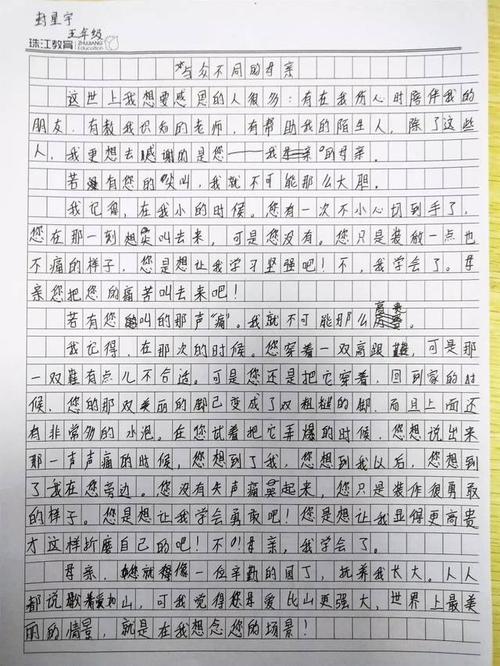 封星宇
五年级
珠江教育 ZHUJIANG Education
与众不同的母亲
这世上我想要感恩的人很多：有在我伤心时陪伴我的
朋友，有教我识知的老师，有帮助我的陌生人，除了这些
人，我更想去感谢的是您——我的母亲。
若没有您的尖叫，我就不可能那么大胆。
我记得，在我小的时候。您有一次不小心切到手了，
您在那一刻想尖叫去来，可是您没有。您只是装放一点也
不痛的样子，您是想让我学习坚强吧！不，我学会了。母
亲您把您的痛苦叫去来吧！
若有您叫的那声“痛”。我就不可能那么高贵。
我记得，在那次的时候。您穿着一双高跟鞋，可是那
一双鞋有点儿不合适。可是您还是把它穿着，回到家的时
候，您的那双美丽的脚已变成了双粗糙的脚，而且上面还
有非常多的水泡。在您试着把它弄爆的时候，您想说出来
那一声声痛的时候，您想到了我，您想到我以后，您想到
了我在您旁边。您没有失声痛哭起来，您只是装作很勇敢
的样子。您是想让我学会勇敢吧！您是想让我显得更高贵
才这样折磨自己的吧！不！母亲，我学会了。
母亲，您就得像一位辛勤的园丁，抚养我长大。人人
都说歌着爱如山，可我觉得您是爱比山更强大，世界上最美
丽的情景，就是在我想念您的场景！